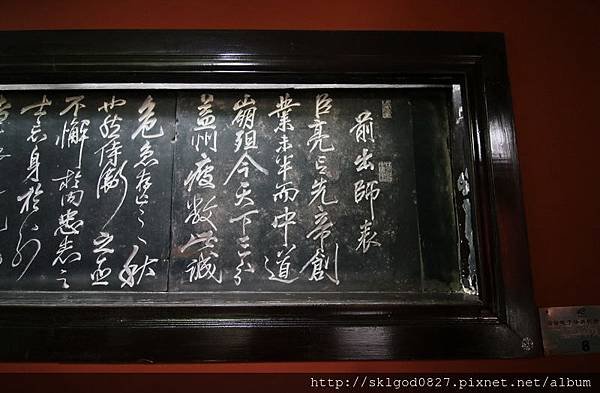 前出師表
臣亮言先帝創
業未半而中道
崩殂今天下三分
益州疲敝此誠
危急存亡之秋
也然侍衛之臣
不懈於內忠志之
士忘身於外
8
http://sklgod0827.pixnet.net/album